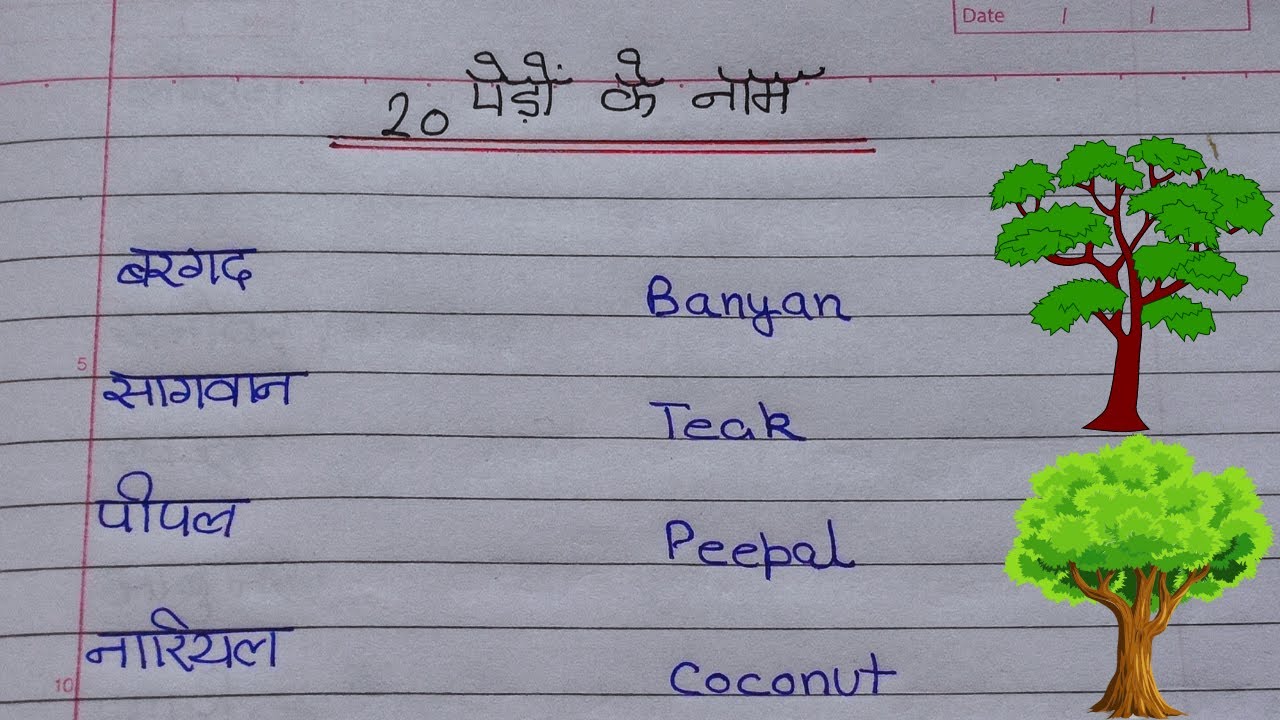 Date / /
20 पेड़ों के नाम
बरगद Banyan
5
सागवान Teak
पीपल Peepal
नारियल Coconut
10